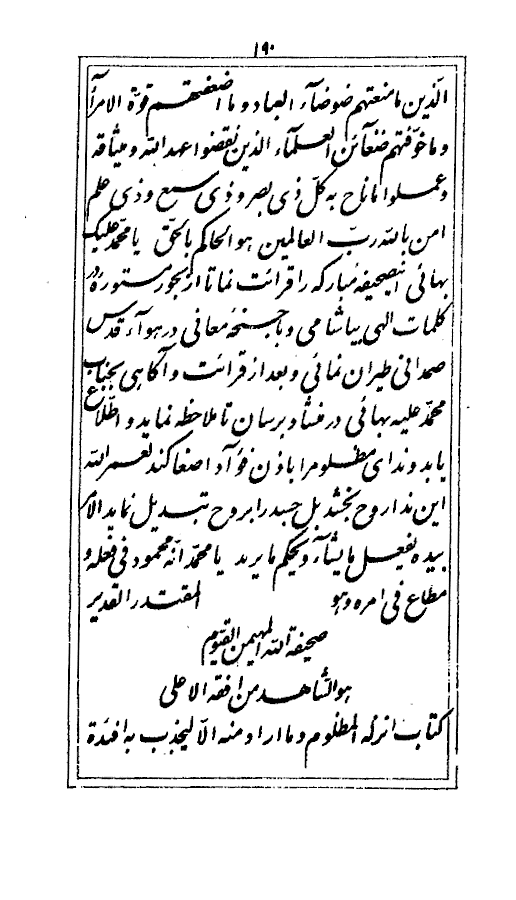 ١٩٠
الّذین ما منعتهم ضوضآء العباد و ما اضعفتهم قوّة الامرآء
و ما خوّفتهم ضغآئن العلمآء الذین نقضوا عهد الله و میثاقه
و عملوا ما ناح به کلّ ذی بصر و ذی سمع و ذی علم
امن بالله ربّ العالمین هو الحاکم بالحقّ یا محمّد علیک
بهائی اینصحیفه مبارکه را قرائت نما تا از بحور مستوره در
کلمات الهی بیاشامی و باجنحه معانی در هوآء قدس
صمدانی طیران نمائی و بعد از قرائت و آگاهی بجناب
محمّد علیه بهائی در فشا و برسان تا ملاحظه نماید و اطّلاع
یابد و ندای مظلوم را باذن فؤآد اصغا کند لعمر الله
این ندا روح بخشد بل جسد را بروح تبدیل نماید الامر
بیده یفعل ما یشآء و یحکم ما یرید یا محمّد انّه محمود فی فعله و
مطاع فی امره و هو المقتدر القدیر
صحیفة الله المهیمن القیّوم
هو الشاهد من افقه الاعلی
کتاب انزله المظلوم و ما اراد منه الّا لیجذب به افئدة